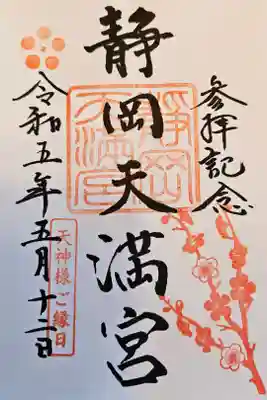 参拝記念
静岡天満宮
静岡
天満宮
令和五年五月十二日
天神様ご縁日